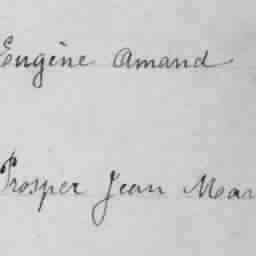 Eugène Amand
Prosper Jean Mar